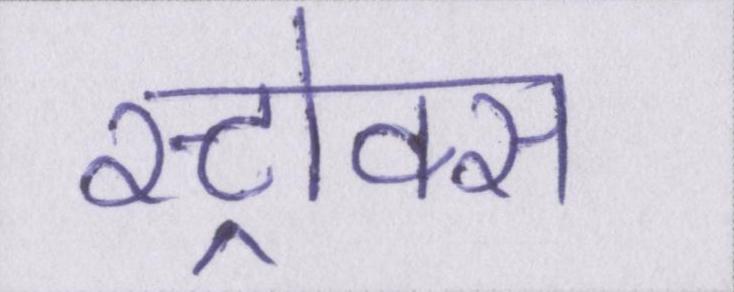 स्ट्रोक्स